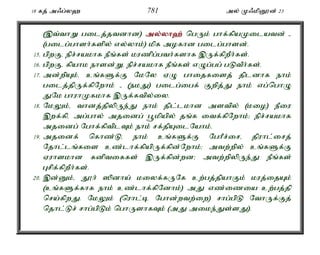 18 கத் அஃப்லஹ 781 அல் முஃமினூன் 23
(இவ்வாறு படைத்தவனான) அல்லாஹ் பெரும் பாக்கியமுடையவன் .
(படைப்பாளர்களில் எல்லாம்) மிக அழகான படைப்பாளன்.
15. பிறகு, நிச்சயமாக நீங்கள் மரணிப்பவர்களாக இருக்கிறீர்கள்.
16. பிறகு, கியாம நாளன்று நிச்சயமாக நீங்கள் எழுப்பப் படுவீர்கள்.
17. அன்றியும், உங்களுக்கு மேலே ஏழு பாதைகளைத் திடனாக நாம்
படைத்திருக்கிறோம் . (நமது) படைப்பைக் குறித்து நாம் எப்பொழு
துமே பாராமுகமாக இருக்கவில்லை.
18. மேலும், வானத்திலிருந்து நாம் திட்டமான அளவில் (மழை) நீரை
இறக்கி, அப்பால் அதனைப் பூமியில் தங்க வைக்கிறோம்; நிச்சயமாக
அதனைப் போக்கிவிடவும் நாம் சக்தியுடையோம்.
19. அதனைக் கொண்டு, நாம் உங்களுக்கு பேரீச்சை, திராட்சைத்
தோட்டங்களை உண்டாக்கியிருக்கின்றோம்; அவற்றில் உங்களுக்கு
ஏராளமான கனிவகைகள் இருக்கின்றன; அவற்றிலிருந்து நீங்கள்
புசிக்கிறீர்கள்.
20. இன்னும், தூர் ஸினாய் மலைக்கருகே உற்பத்தியாகும் மரத்தையும்
(உங்களுக்காக நாம் உண்டாக்கினோம்) அது எண்ணெயை உற்பத்தி
செய்கிறது. மேலும் (ரொட்டி போன்றவற்றை) சாப்பிடு வோருக்குத்
தொட்டுச் சாப்பிடும் பொருளாகவும் (அது அமைந்துள்ளது)